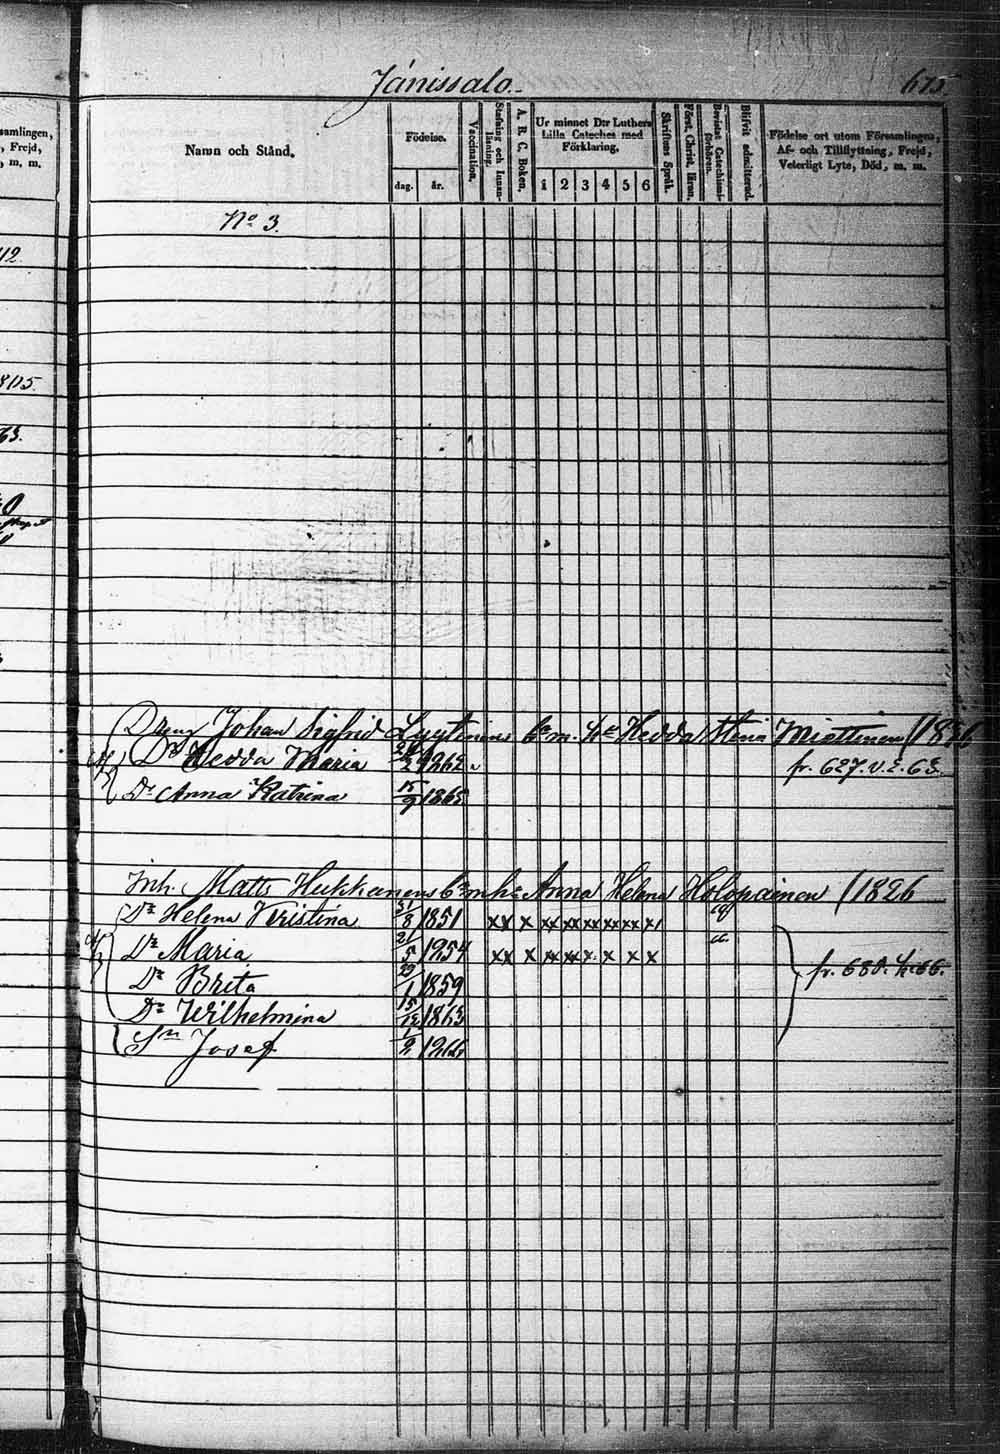 Jänissalo.
675
samlingen,
, Frejd,
, m. m.
Namn och Stånd.
Födelse.
dag.
år.
Vaccination.
Stafning och Innan-
läsning.
A. B. C. Boken.
Ur minnet D:r Luthers
Lilla Cateches med
Förklaring.
1 2 3 4 5 6
Skriftens Språk.
Först. Christ. läran.
Bevistat Catechismi-
förhören.
Blifvit admitterad.
Födelse ort utom Församlingen,
Af- och Tillflyttning, Frejd,
Veterligt Lyte, Död, m. m.
No 3.
12.
805.
63.
Dreng Johan Sigfrid Lyytinens Hedda Stina Miettinen
Dr Hedda Maria 1862 fr. 627. v. 2. 63.
Dr Anna Katrina 15/9 1865
Inh. Matts Hukkanens Anna Helena Holopainen /1826
Dr Helena Kristina 31/8 1851 xx x xx xx xx xx x
Dr Maria 21/5 1854 xx x xx xx x x x x
Dr Brita 29/1 1859
Dr Wilhelmina 15/12 1863
Sn Josef 1/2 1866